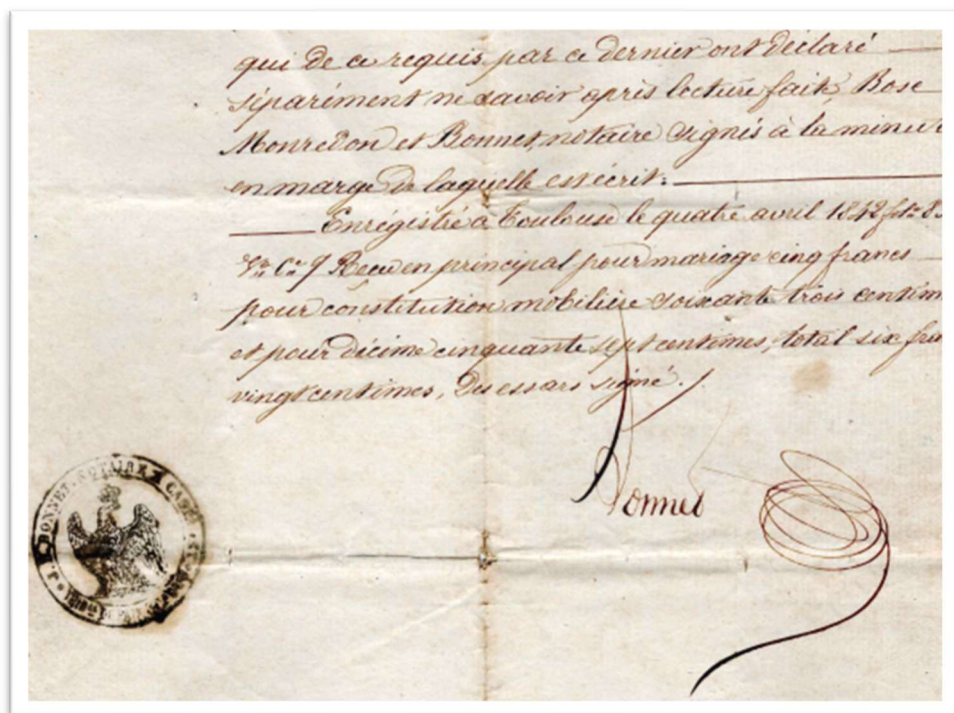 qui de ce requis par ce dernier ont déclaré
séparément ne savoir après lecture faite, Bose
Monredon et Bonnet, notaire signés à la minute
en marge de laquelle est écrit.
Enrégistré à Toulouse le quatre avril 1842 fo 8
Vo Ce 7 Reçu en principal pour mariage cinq francs
pour constitution mobilière soixante trois centim
et pour décime cinquante sept centimes, total six fran
vingt centimes, Des essars signé.
Bonnet
J. BONNET NOTAIRE A